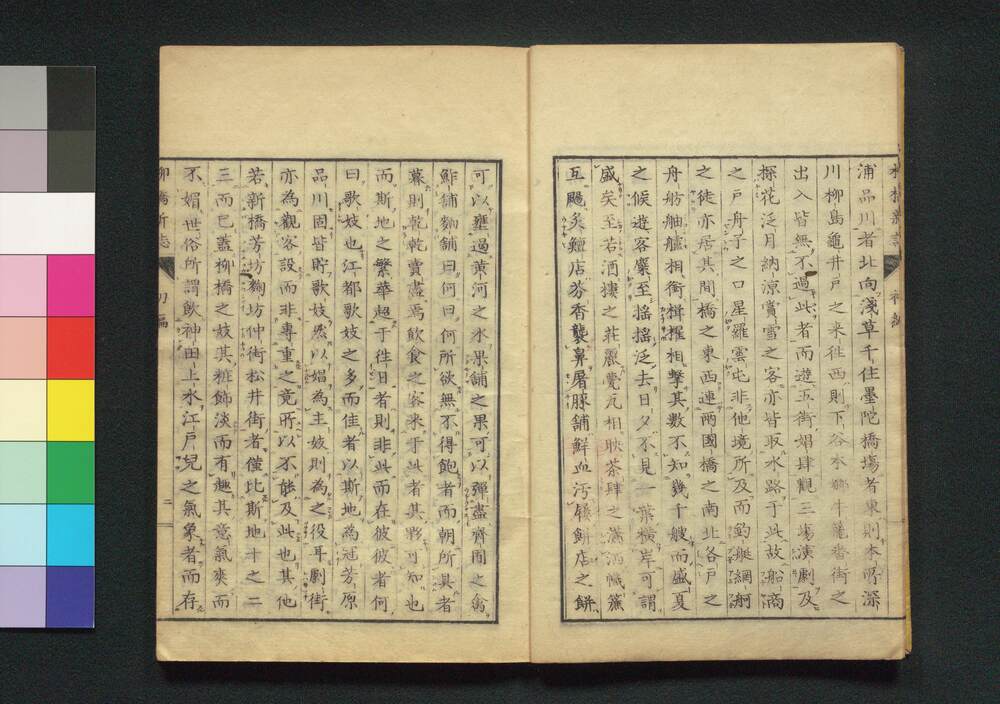 浦品川者北向淺草千住墨陀橋塲者東則本所深
川柳島龜井戸之来往西則下谷本郷牛籠番街之
出入皆無不過此者而遊五街娼肆觀三塲演劇及
探花泛月納涼賞雪之客亦皆取水路于此故船商
之戸舟子之口星羅雲屯非他境所及而釣艇網舸
之徒亦居其間橋之東西連兩國橋之南北各戸之
舟舫舳艫相銜楫擢相撃其數不知幾千艘而盛夏
之候遊客麕至摇摇泛去日夕不見一葉横岸可謂
盛矣至若酒樓之莊麗甍瓦相映茶肆之瀟洒幟簾
互颺炙鰻店芬香襲鼻屠豚舗鮮血汚
餅店之餅
可以壅過黄河之水果舗之果可以彈盡齊閭之禽
鮓舗麪舗曰何曰何所欲無不得飽者而朝所具者
暮則乾乾賣盡焉飲食之客来于此者其夥可知也
而斯地之繁華超于往日者則非此而在彼彼者何
曰歌妓也江都歌妓之多而佳者以斯地為冠芳原
品川固皆貯歌妓然以娼為主妓則為之役耳劇街
亦為觀客設而非專重之竟所以不能及此也其他
若新橋芳坊麴坊仲街松井街者僅比斯地十之二
三而已蓋柳橋之妓其粧飾淡而有趣其意氣爽而
不媚世俗所謂飲神田上水江戸兒之氣象者而存
柳橋新誌
初編
二